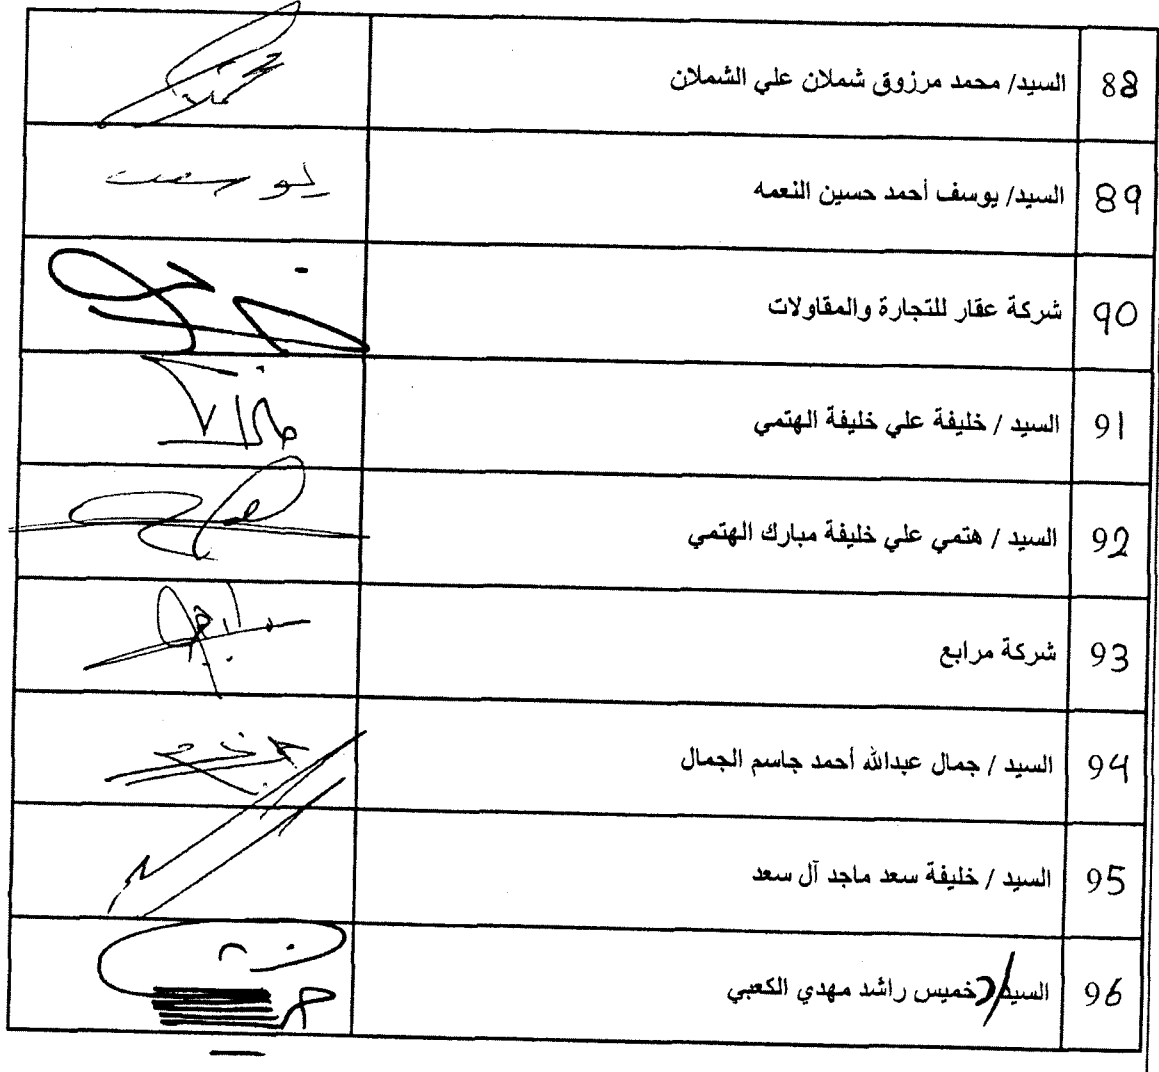 88 السيد/ محمد مرزوق شملان علي الشملان
89 السيد/ يوسف أحمد حسين النعمه
يوسف
90 شركة عقار للتجارة والمقاولات
91 السيد / خليفة علي خليفة الهتمي
92 السيد / هتمي علي خليفة مبارك الهتمي
93 شركة مرابع
94 السيد / جمال عبدالله أحمد جاسم الجمال
95 السيد / خليفة سعد ماجد آل سعد
96 السيد/ خميس راشد مهدي الكعبي